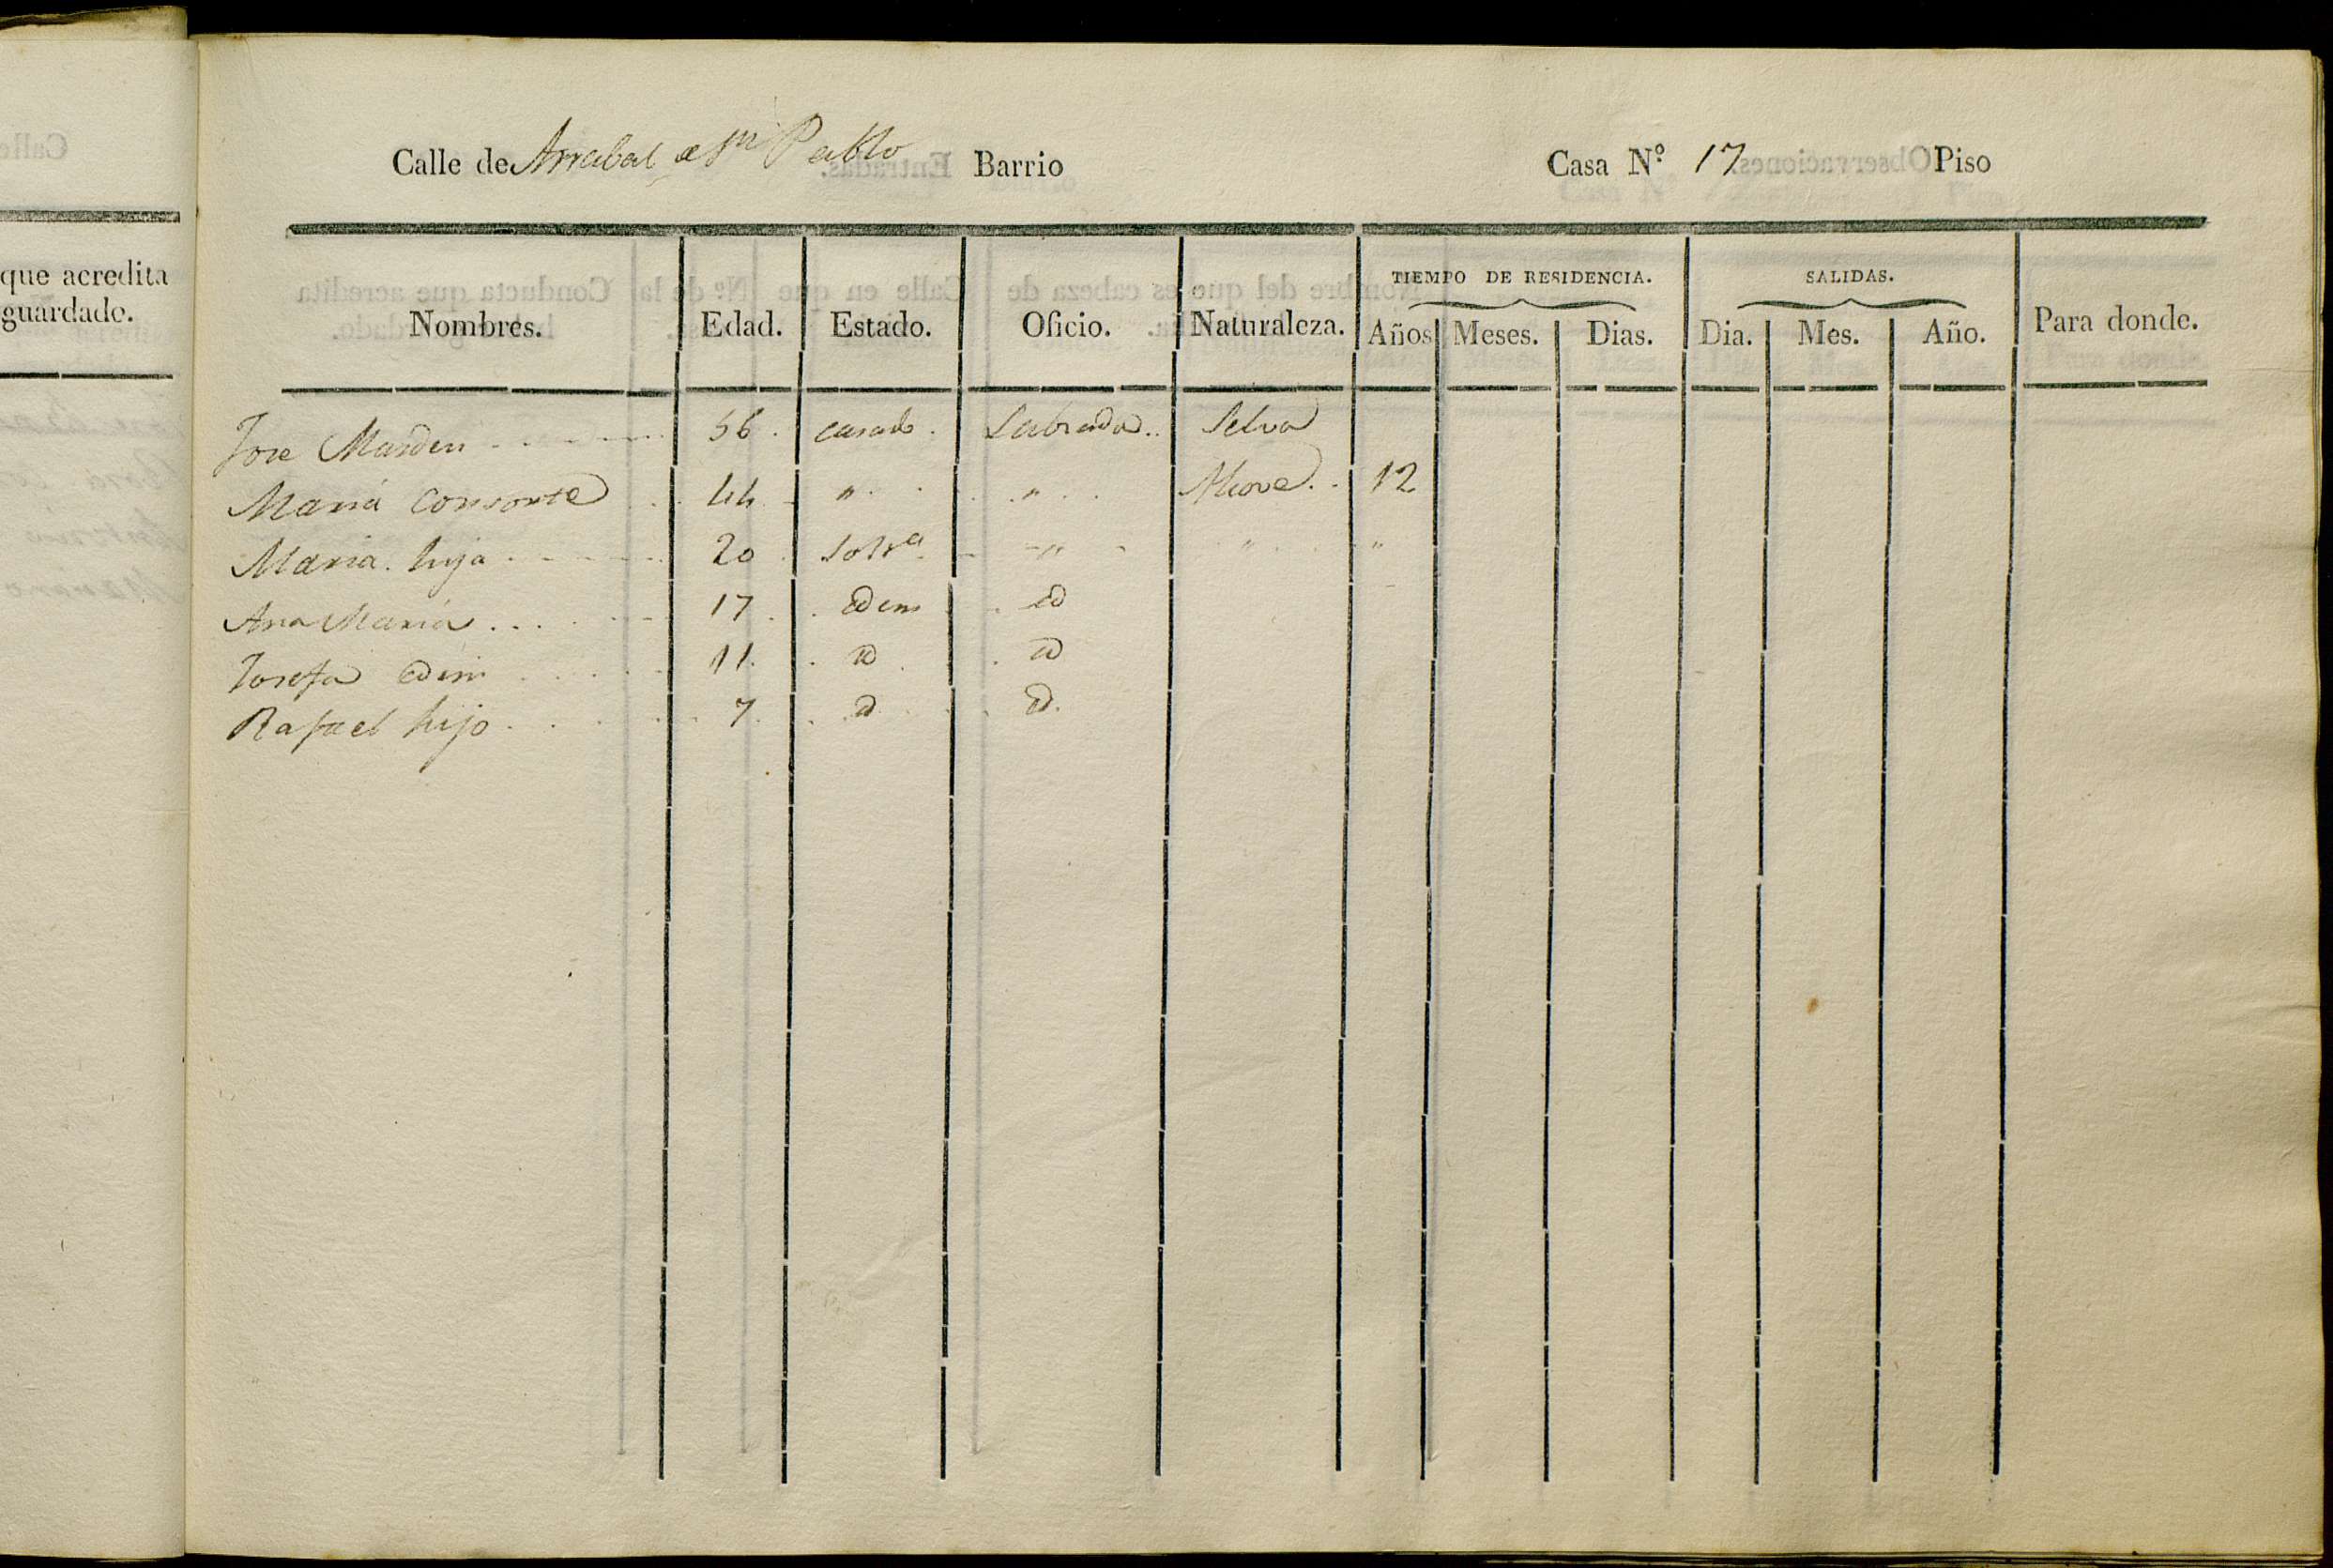 que acredita
guardado.
Calle de Arrabal de Sn Pablo Barrio Casa N.º 17 Piso
TIEMPO DE RESIDENCIA. SALIDAS.
Nombres. Edad. Estado. Oficio. Naturaleza. Años Meses. Dias. Dia. Mes. Año. Para donde.
Jose 56. casado. Labrador.. Selva
Maria Consorte 44 " " 12
Maria. hija 20 Soltra " " "
Ana Maria 17 Idem id
Josefa Idem 11. id id
Rafael hijo 7. id id.